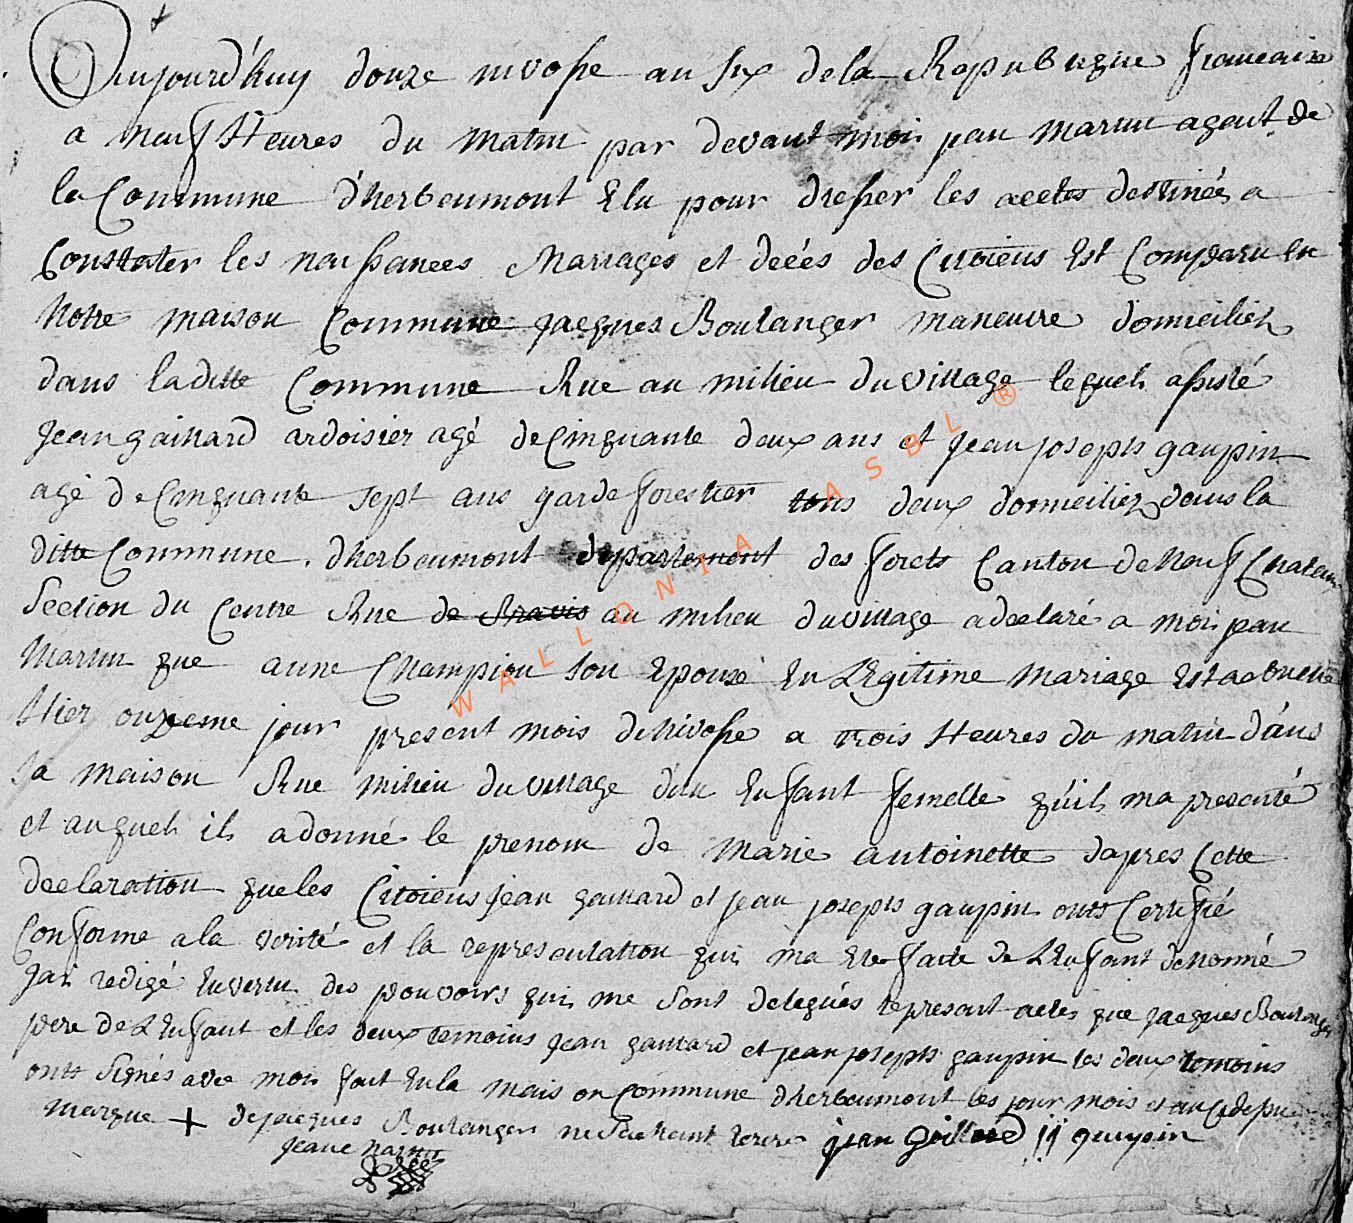 Aujourd'huy douze nivose an six dela Republique francaise
a neuf Heures du matin par devant moi jean martin agent de
la Commune d'herbeumont Elu pour dresser les actes destinés a
Constater les naissances Marriages et décés des Citoiens Est Comparu En
Notre maison Commune jacques Boulanger maneuvre domiciliez
dans laditte Commune Rue au milieu du village lequel assisté
jean gaillard ardoisier agé de Cinquante deux ans et jean joseph gaupin
agé de Cenquante sept ans garde forestier tous deux domiciliez dans la
ditte Commune d'herbeumont departement des forets Canton de Neufchateau
Section du Centre Rue au milieu du village adeclaré a moi jean
Martin que anne Champion son Epouse En Légitime mariage Est acouchée
Hier onzeme jour présent mois de Nivose a trois Heures du matin dans
sa maison Rue milieu du village d'un Enfant femelle qu'il ma presenté
et auquel il adonné le prenom de marie antoinette dapres Cette
declaration que les Citoiens jean gaillard et jean joseph gaupin onts Certifié
Conforme a la verité et la representation qui ma Ete faite de L'Enfant denommé
jai redigé En vertu des pouvoirs qui me sont delegués le present acte que jacques Boulanger
pere de L'Enfant et les deux temoins jean gaillard et jean joseph gaupin les deux temoins
onts Signés avec moi fait En la maison Commune d'herbeumont les jour mois et an
marque + de jacques Boulanger ne sachant Ecrire jean Gaillard jj gaupin
WALLONIA ASBL ®